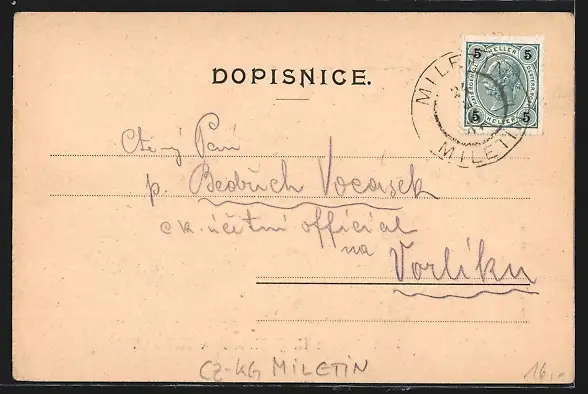 DOPISNICE.
5 HELLER 5
5 HELLER 5
MILETIN
MILETIN
Ctěný Paní
p. Bedřich Vocásek
c k. účetní official
na
Vorlíku
CZ-KG MILETIN
16,-